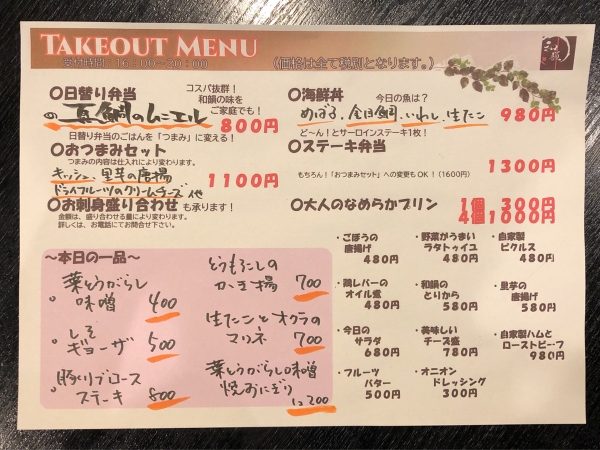 TAKEOUT MENU
受付時間 16:00~20:00
(価格は全て税別となります。)
〇日替り弁当
コスパ抜群!
和韻の味を
ご家庭でも!
の 真鯛のムニエル 800円
日替り弁当のごはんを「つまみ」に変える!
〇おつまみセット
つまみの内容は仕入れにより変わります。
キッシュ、里芋の唐揚
ドライフルーツのクリームチーズ 他
1100円
〇お刺身盛り合わせ も承ります!
金額は、盛り合わせる量により変わります。
詳しくは、お電話にてお問合せ下さい。
〇海鮮丼 今日の魚は?
めばる、金目鯛、いわし、生たこ 980円
ど~ん!とサーロインステーキ1枚!
〇ステーキ弁当
1300円
もちろん!「おつまみセット」への変更もOK!(1600円)
〇大人のなめらかプリン 1個 300円
4個1,000円
~本日の一品~
葉とうがらし
味噌 400
しそ
ギョーザ 500
豚リブロース
ステーキ 800
とうもろこしの
かき揚 700
生たことオクラの
マリネ 700
葉とうがらし味噌
焼おにぎり
1コ200
・ごぼうの
唐揚げ
480円
・野菜がうまい
ラタトゥイユ
480円
・自家製
ピクルス
480円
・鶏レバーの
オイル煮
480円
・和韻の
とりから
580円
・里芋の
唐揚げ
580円
・今日の
サラダ
680円
・美味しい
チーズ盛
780円
・自家製ハムと
ローストビーフ
980円
・フルーツ
バター
500円
・オニオン
ドレッシング
300円